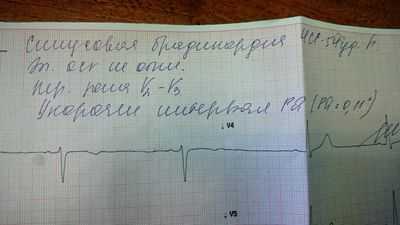 Синусовая брадикардия ЧСС-54уд. в
Эл. ось не откл.
пер. зона V2-V3
Укорочен интервал PQ (PQ=0,11")
V4
V5